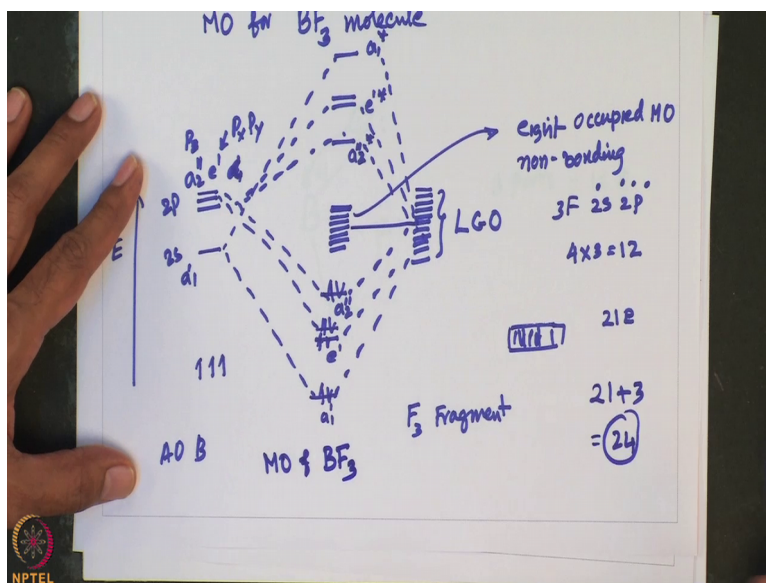 MO for BF3 molecule
a1*
e'*
a2''*
Pz Px Py
a2'' e'
2P
E
2s
a1'
eight occupied MO
non-bonding
LGO
3F 2s 2p
4x3=12
21e
21+3
=24
a2''
e'
a1'
111
F3 Fragment
AO B
MO of BF3
NPTEL